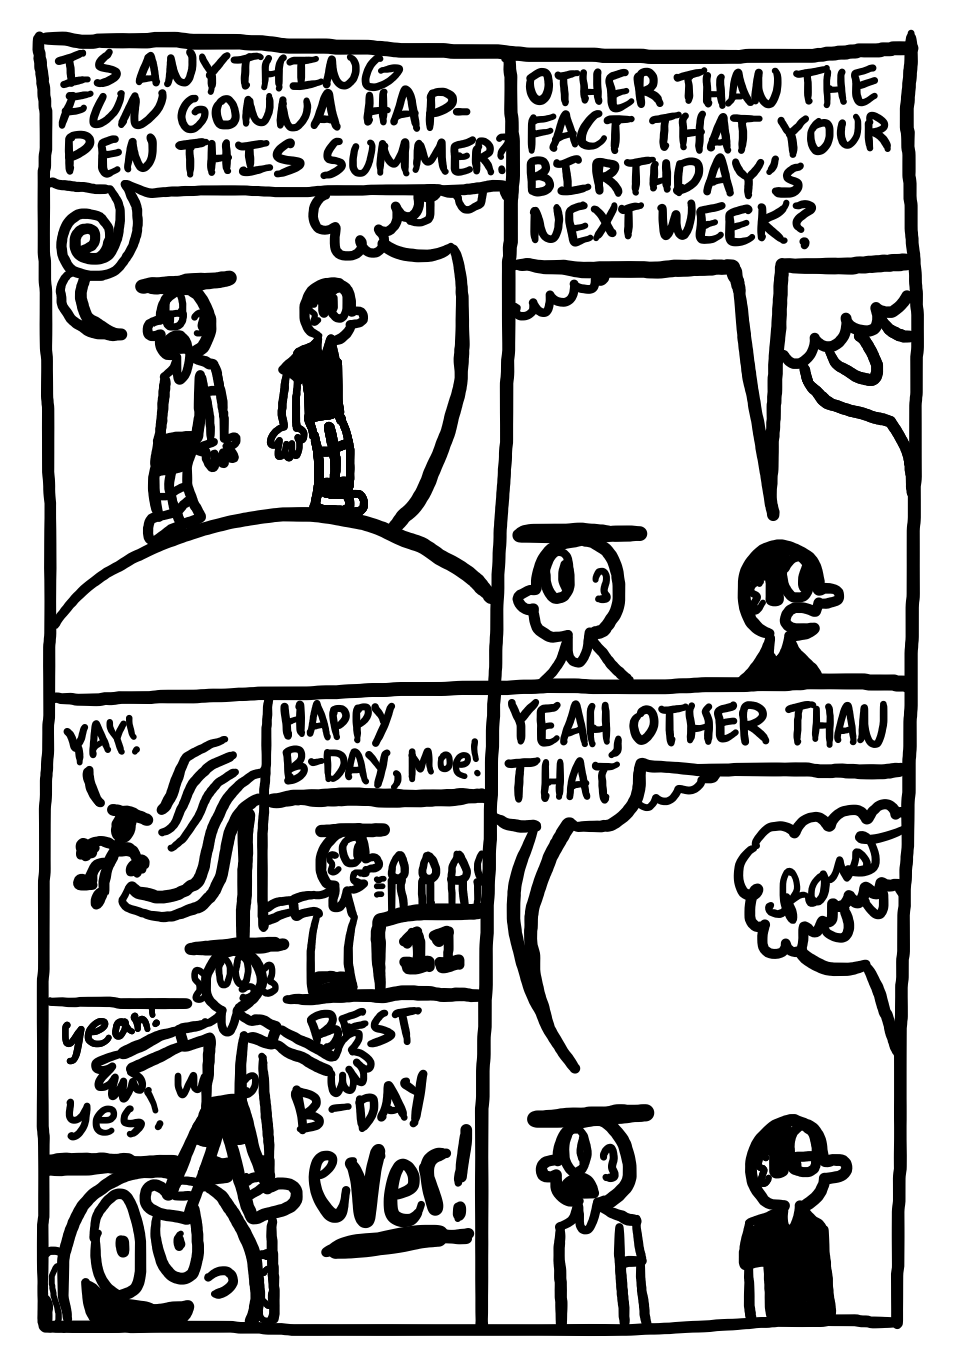 IS ANYTHING
FUN GONNA HAP-
PEN THIS SUMMER?
OTHER THAN THE
FACT THAT YOUR
BIRTHDAY'S
NEXT WEEK?
YAY!
HAPPY
B-DAY, Moe!
11
yeah!
yes!
BEST
B-DAY
ever!
YEAH, OTHER THAN
THAT